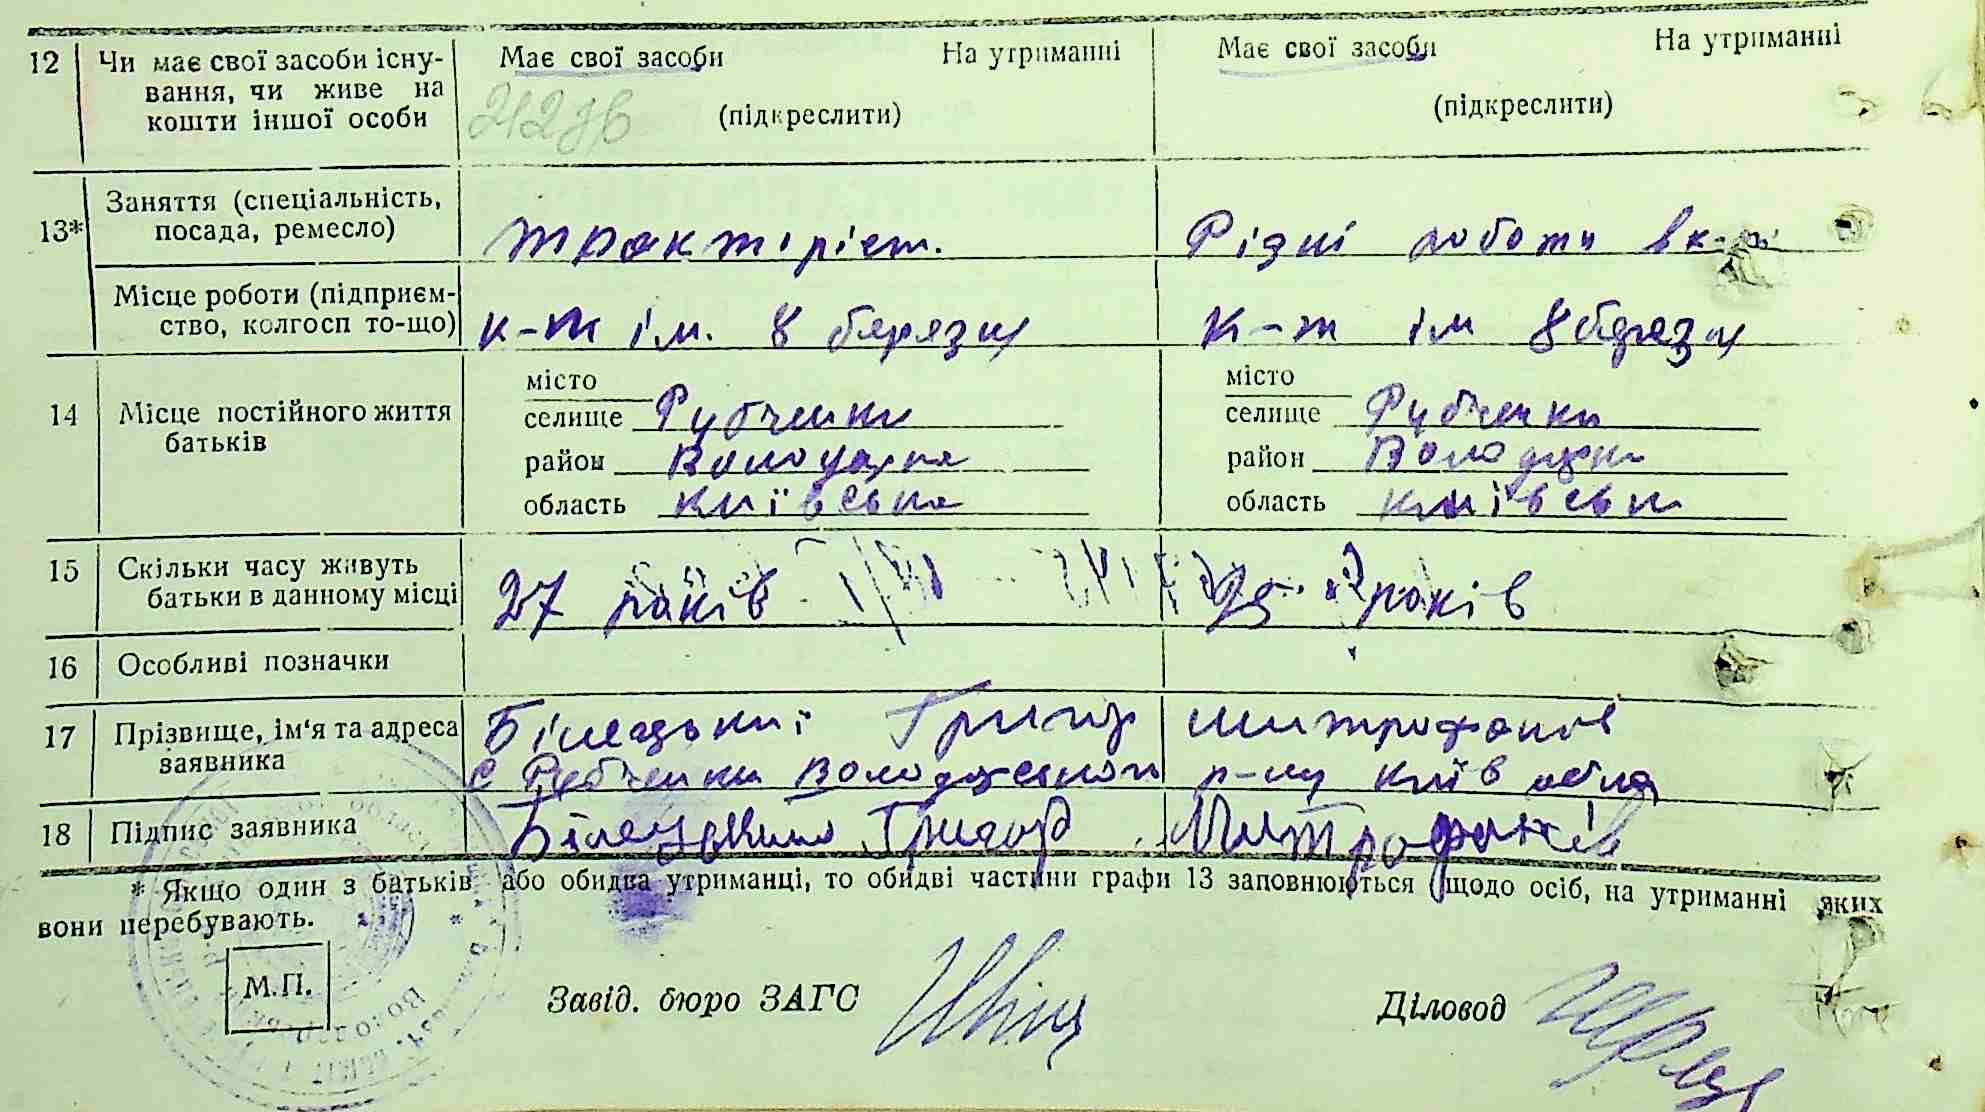 12 Чи має свої засоби існу- Має свої засоби На утриманні Має свої засоби На утриманні
вання, чи живе на
кошти іншої особи (підкреслити) (підкреслити)
Заняття (спеціальність,
13* посада, ремесло) тракторіст. Різні роботи в к-ті
Місце роботи (підприєм-
ство, колгосп то-що) к-т ім. 8 березн к-т ім 8 березн
місто місто
14 Місце постійного життя селище Рубченки селище Рубченки
батьків район Володарка район
область київська область київськ
15 Скільки часу живуть
батьки в данному місці 27 років 25 років
16 Особливі позначки
17 Прізвище, ім'я та адреса Білецький Григор митрофанов
заявника с Рубченки Володарського р-ну Київ обла
18 Підпис заявника Григор Митрофанів
* Якщо один з батьків або обидва утриманці, то обидві частини графи 13 заповнюються щодо осіб, на утриманні яких
вони перебувають.
М.П. Завід. бюро ЗАГС Діловод